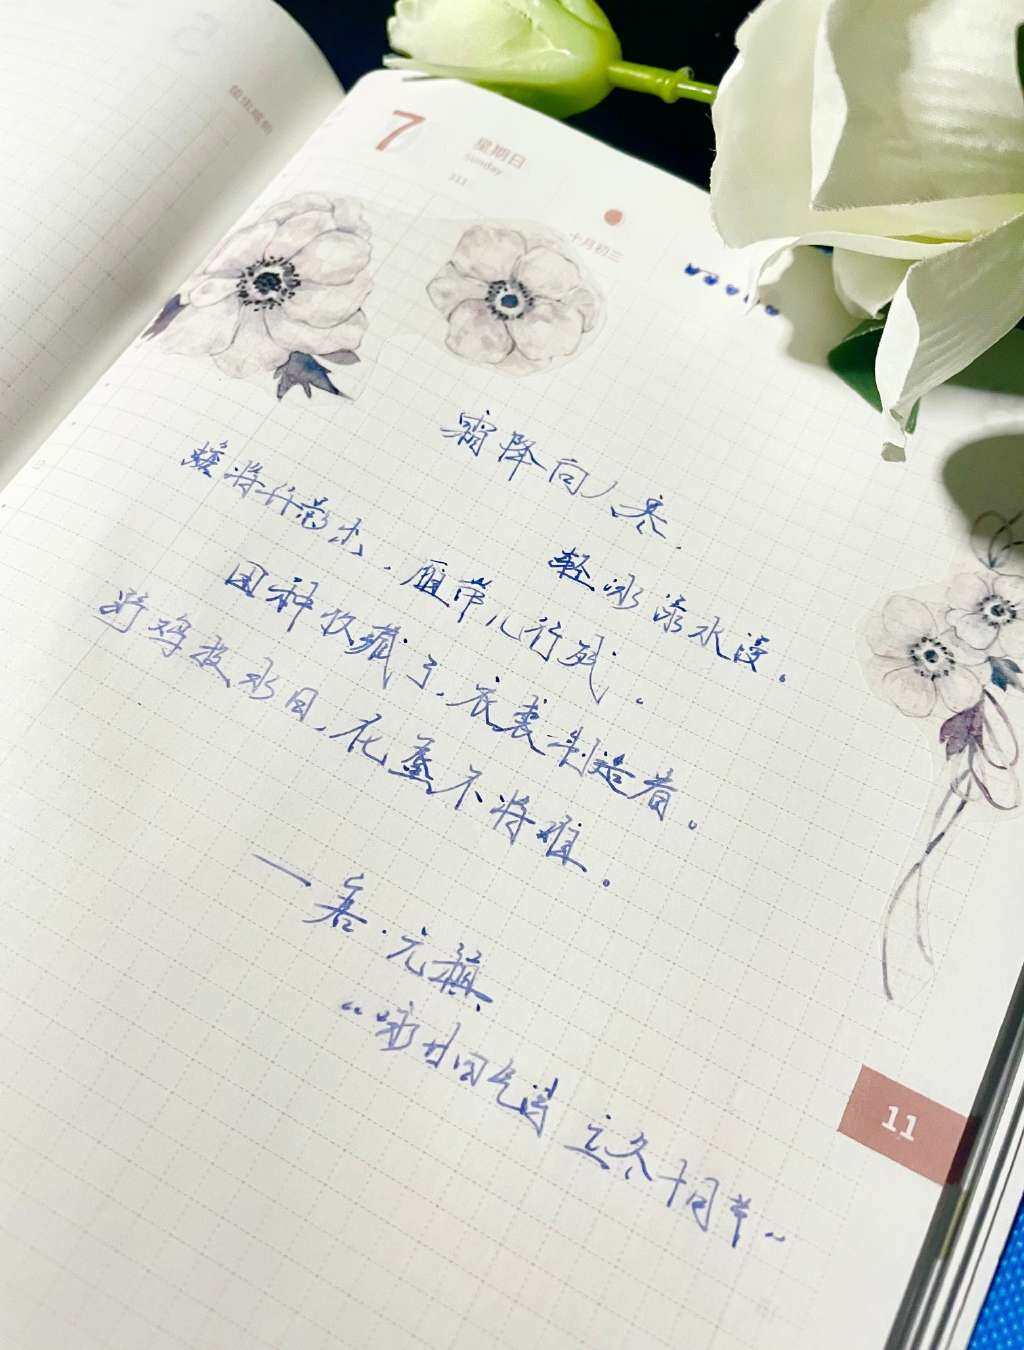 蛰虫咸俯
7
星期日
Sunday
311
十月初三
霜降向人寒,
轻冰渌水漫。
蟾将纤影出,雁带几行残。
田种收藏了,衣裘制造看。
野鸡投水日,化蜃不将难。
——唐·元稹
“咏廿四气诗 立冬十月节”
11